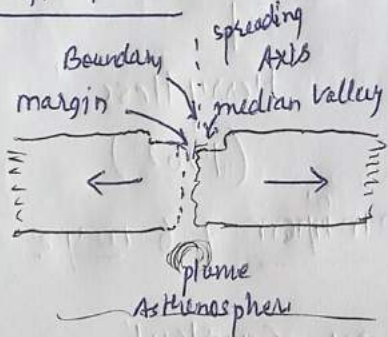 spreading
Axis
Boundary
margin
median valley
plume
Asthenosphere